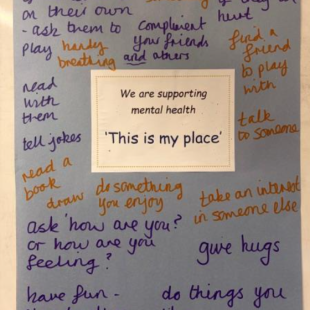 on their own
hurt
- ask them to
play
handy
breathing
compleient
you friends
and others
find a
friend
to play
with
read
with
them
We are supporting
mental health
'This is my place'
talk
to someone
tell jokes
read a
book
draw
do something
you enjoy
take an interest
in someone else
ask 'how are you?
or how are you
feeling?
give hugs
have fun -
do things you